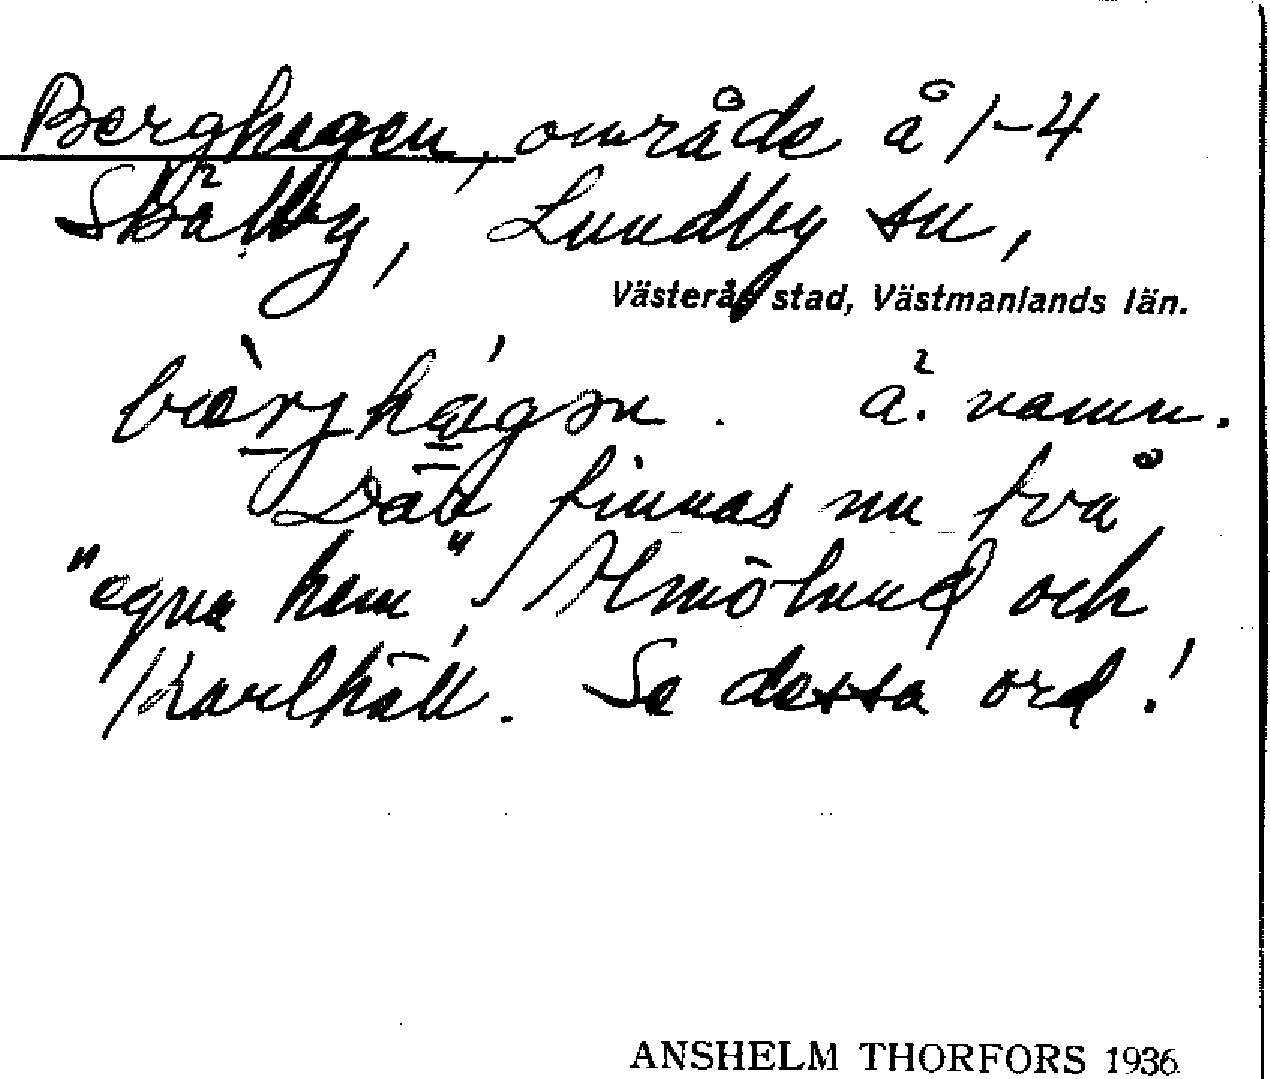 Berghagen, område å 1-4
Skälby, Lundby sn,
Västerås stad, Västmanlands län.
bæ̀rjhá̱gən. ä. namn.
Där finnas nu två
"egna hem", Almölund och
Karlhäll. Se dessa ord!
ANSHELM THORFORS 1936